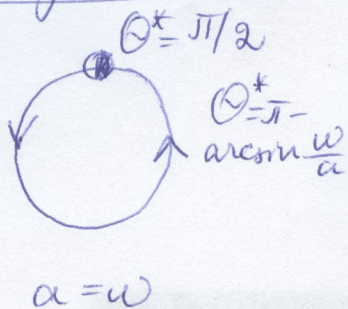 θ* = π/2
θ* = π -
arcsin w/a
a = w